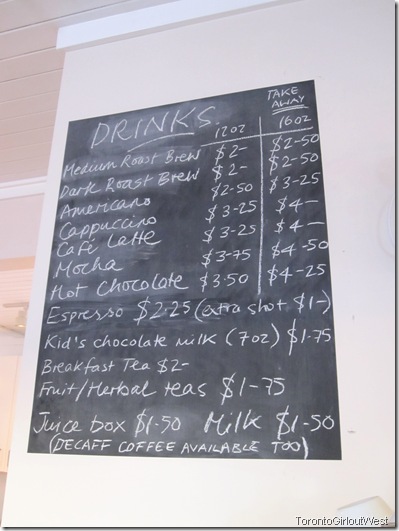 TAKE
AWAY
DRINKS.
12oz 16oz
Medium Roast Brew $2- $2-50
Dark Roast Brew $2- $2-50
Americano $2-50 $3-25
Cappuccino $3-25 $4-
Café Latte $3-25 $4-
Mocha $3-75 $4-50
Hot Chocolate $3-50 $4-25
Espresso $2-25 (extra shot $1-)
Kid's chocolate milk (7oz) $1-75
Breakfast Tea $2-
Fruit/Herbal teas $1-75
Juice box $1-50 Milk $1-50
(DECAFF COFFEE AVAILABLE TOO)
TorontoGirloutWest